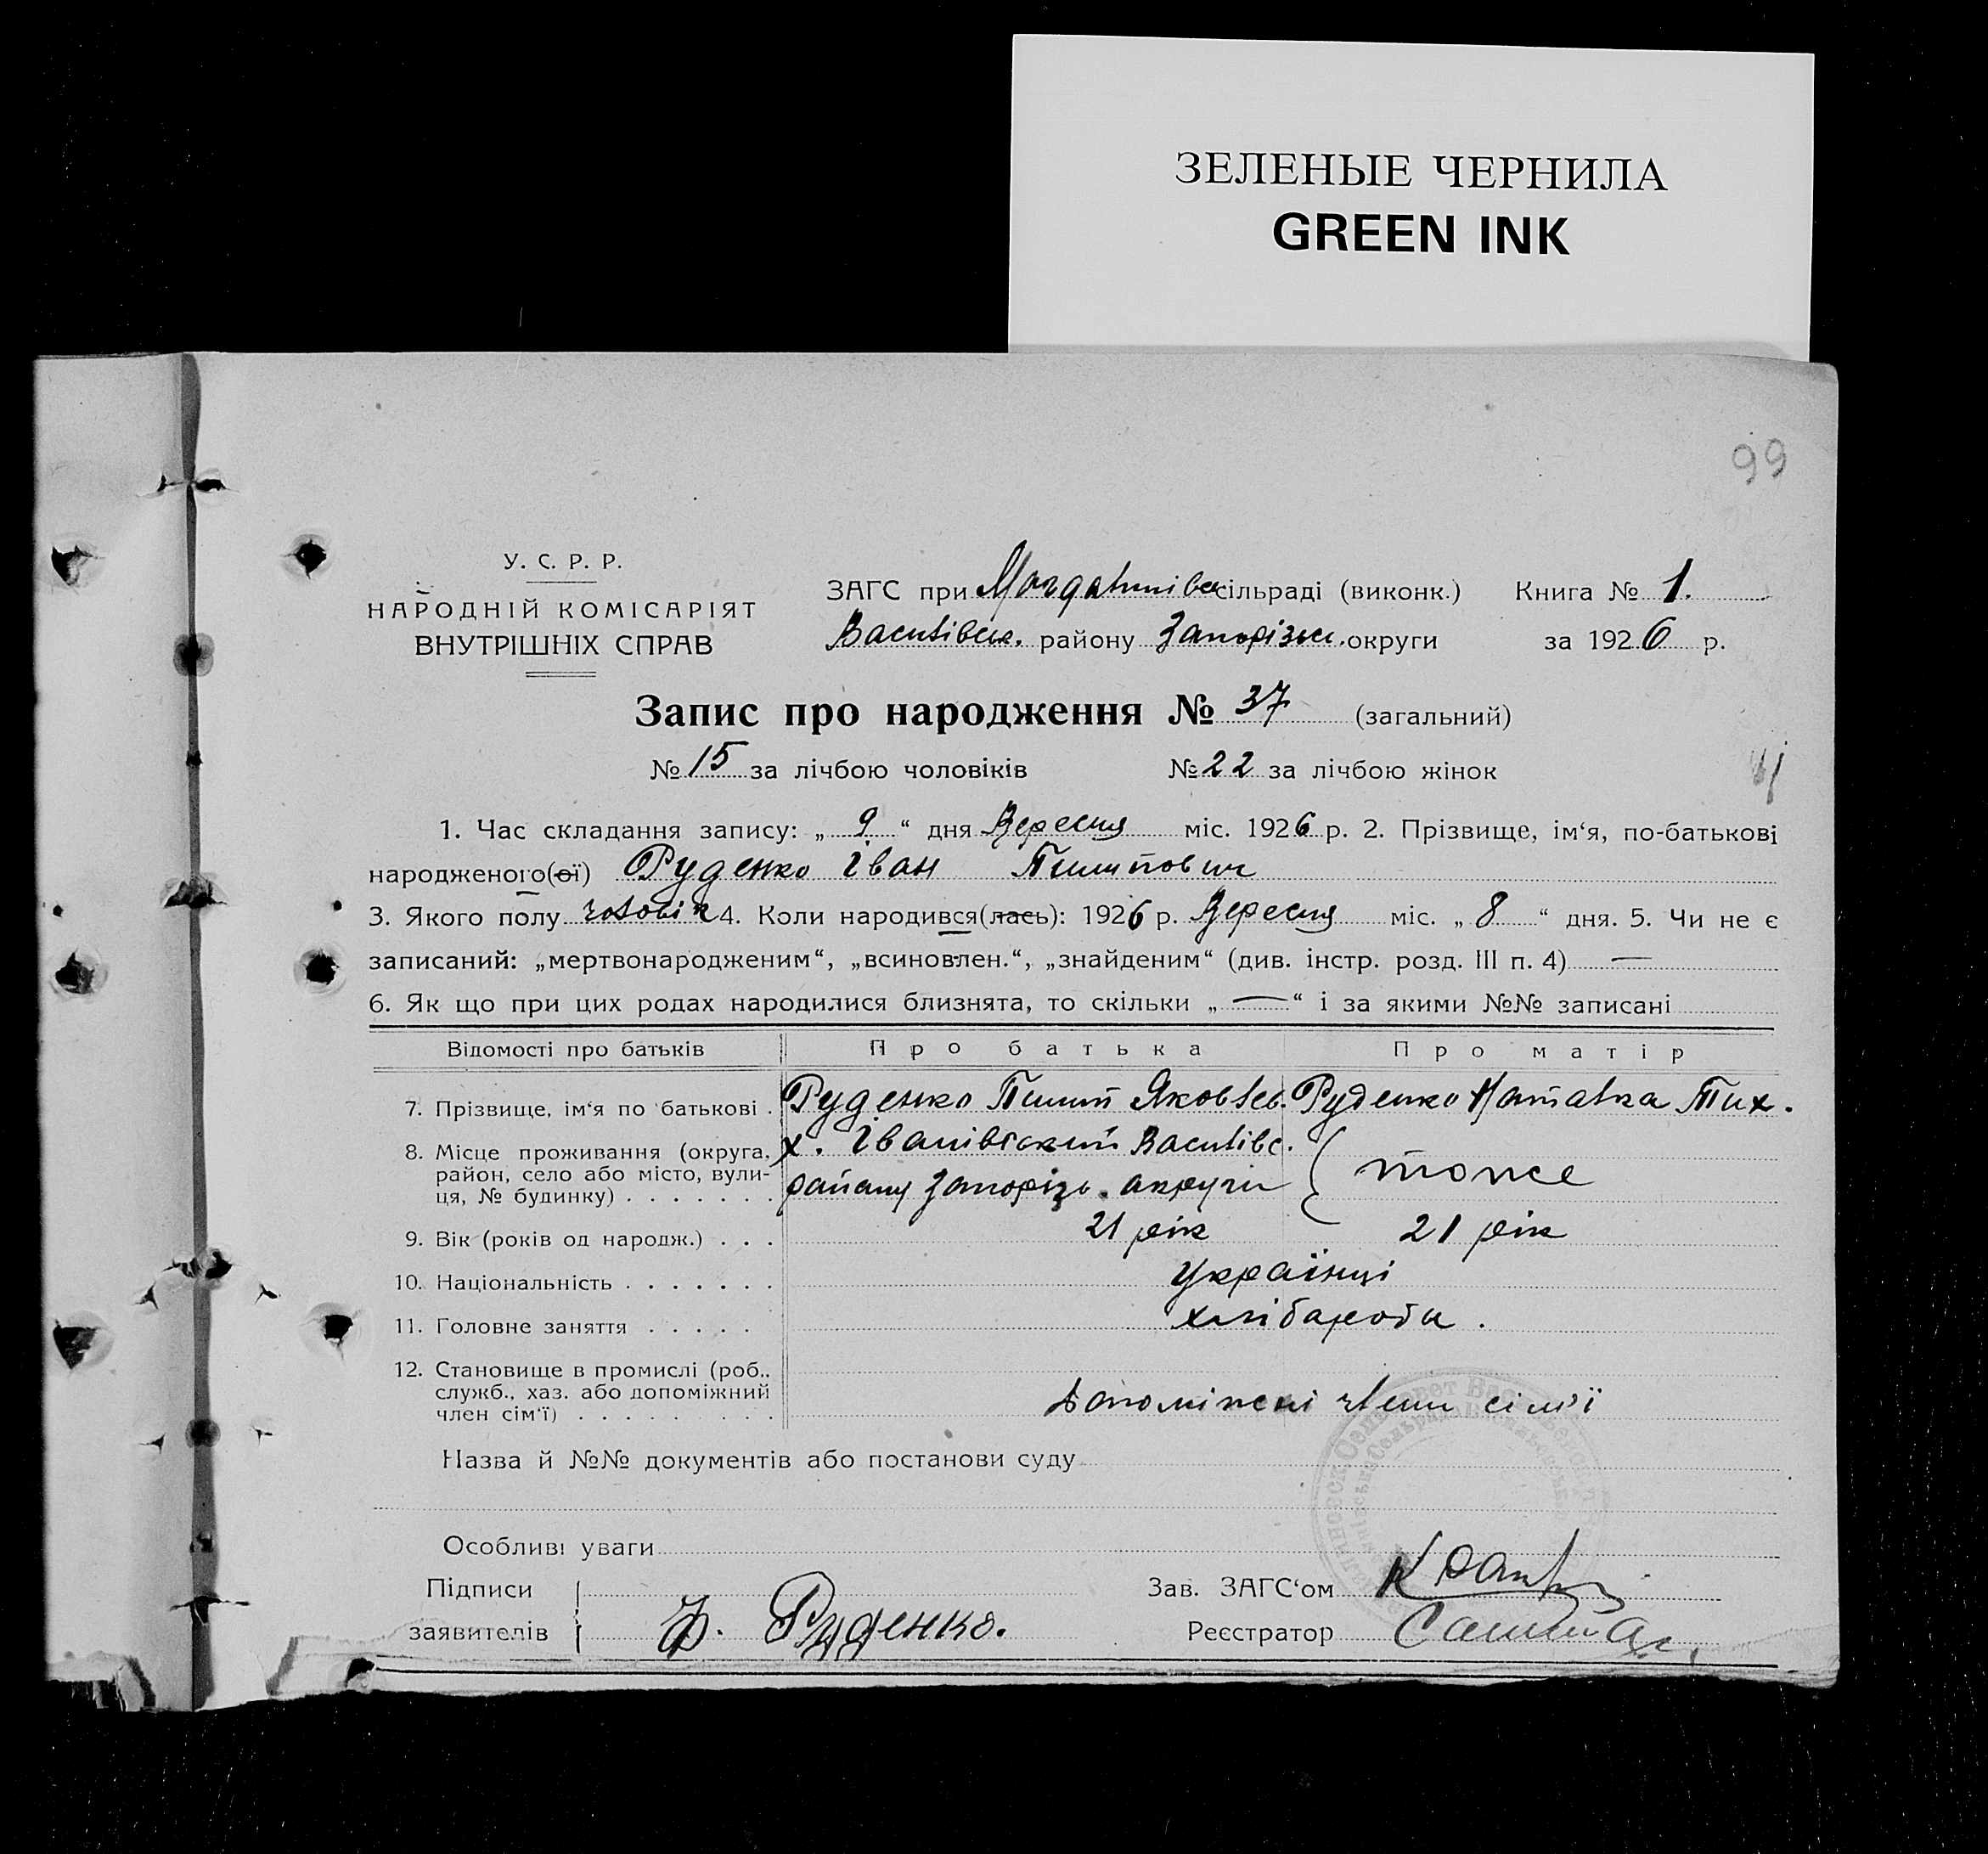 ЗЕЛЕНЫЕ ЧЕРНИЛА
GREEN INK
99
У. С. Р. Р.
НАРОДНІЙ КОМІСАРІЯТ
ВНУТРІШНІХ СПРАВ
ЗАГС при сільраді (виконк.) Книга № 1.
Василівськ. району Запорізьк. округи за 1926 р.
Запис про народження № 37 (загальний)
№ 15 за лічбою чоловіків № 22 за лічбою жінок
1. Час складання запису: „ 9 “ дня Вересня міс. 1926 р. 2. Прізвище, ім‘я, по-батькові
народженого(ої) Руденко Іван Пилипович
3. Якого полу чоловік 4. Коли народився(лась): 1926 р. Вересня міс. „ 8 “ дня. 5. Чи не є
записаний: „мертвонародженим“, „всиновлен.“, „знайденим“ (див. інстр. розд. III п. 4) —
6. Як що при цих родах народилися близнята, то скільки „ — “ і за якими №№ записані
Відомості про батьків Про батька Про матір
7. Прізвище, ім‘я по батькові . Руденко Пилип Яковлев. Руденко Наталка Тих.
8. Місце проживання (округа, х. Іванівський Василівс.
район, село або місто, вули- району Запорізь. округи тоже
ця, № будинку) . . . . . . .
9. Вік (років од народж.) . . . 21 рік 21 рік
10. Національність . . . . . . . Українці
11. Головне заняття . . . . . хлібароби .
12. Становище в промислі (роб.,
служб., хаз. або допоміжний
член сім‘ї) . . . . . . . . . Допоміжні члени сім'ї
Назва й №№ документів або постанови суду
Особливі уваги
Підписи Зав. ЗАГС‘ом
заявителів Ф. Руденко. Реєстратор